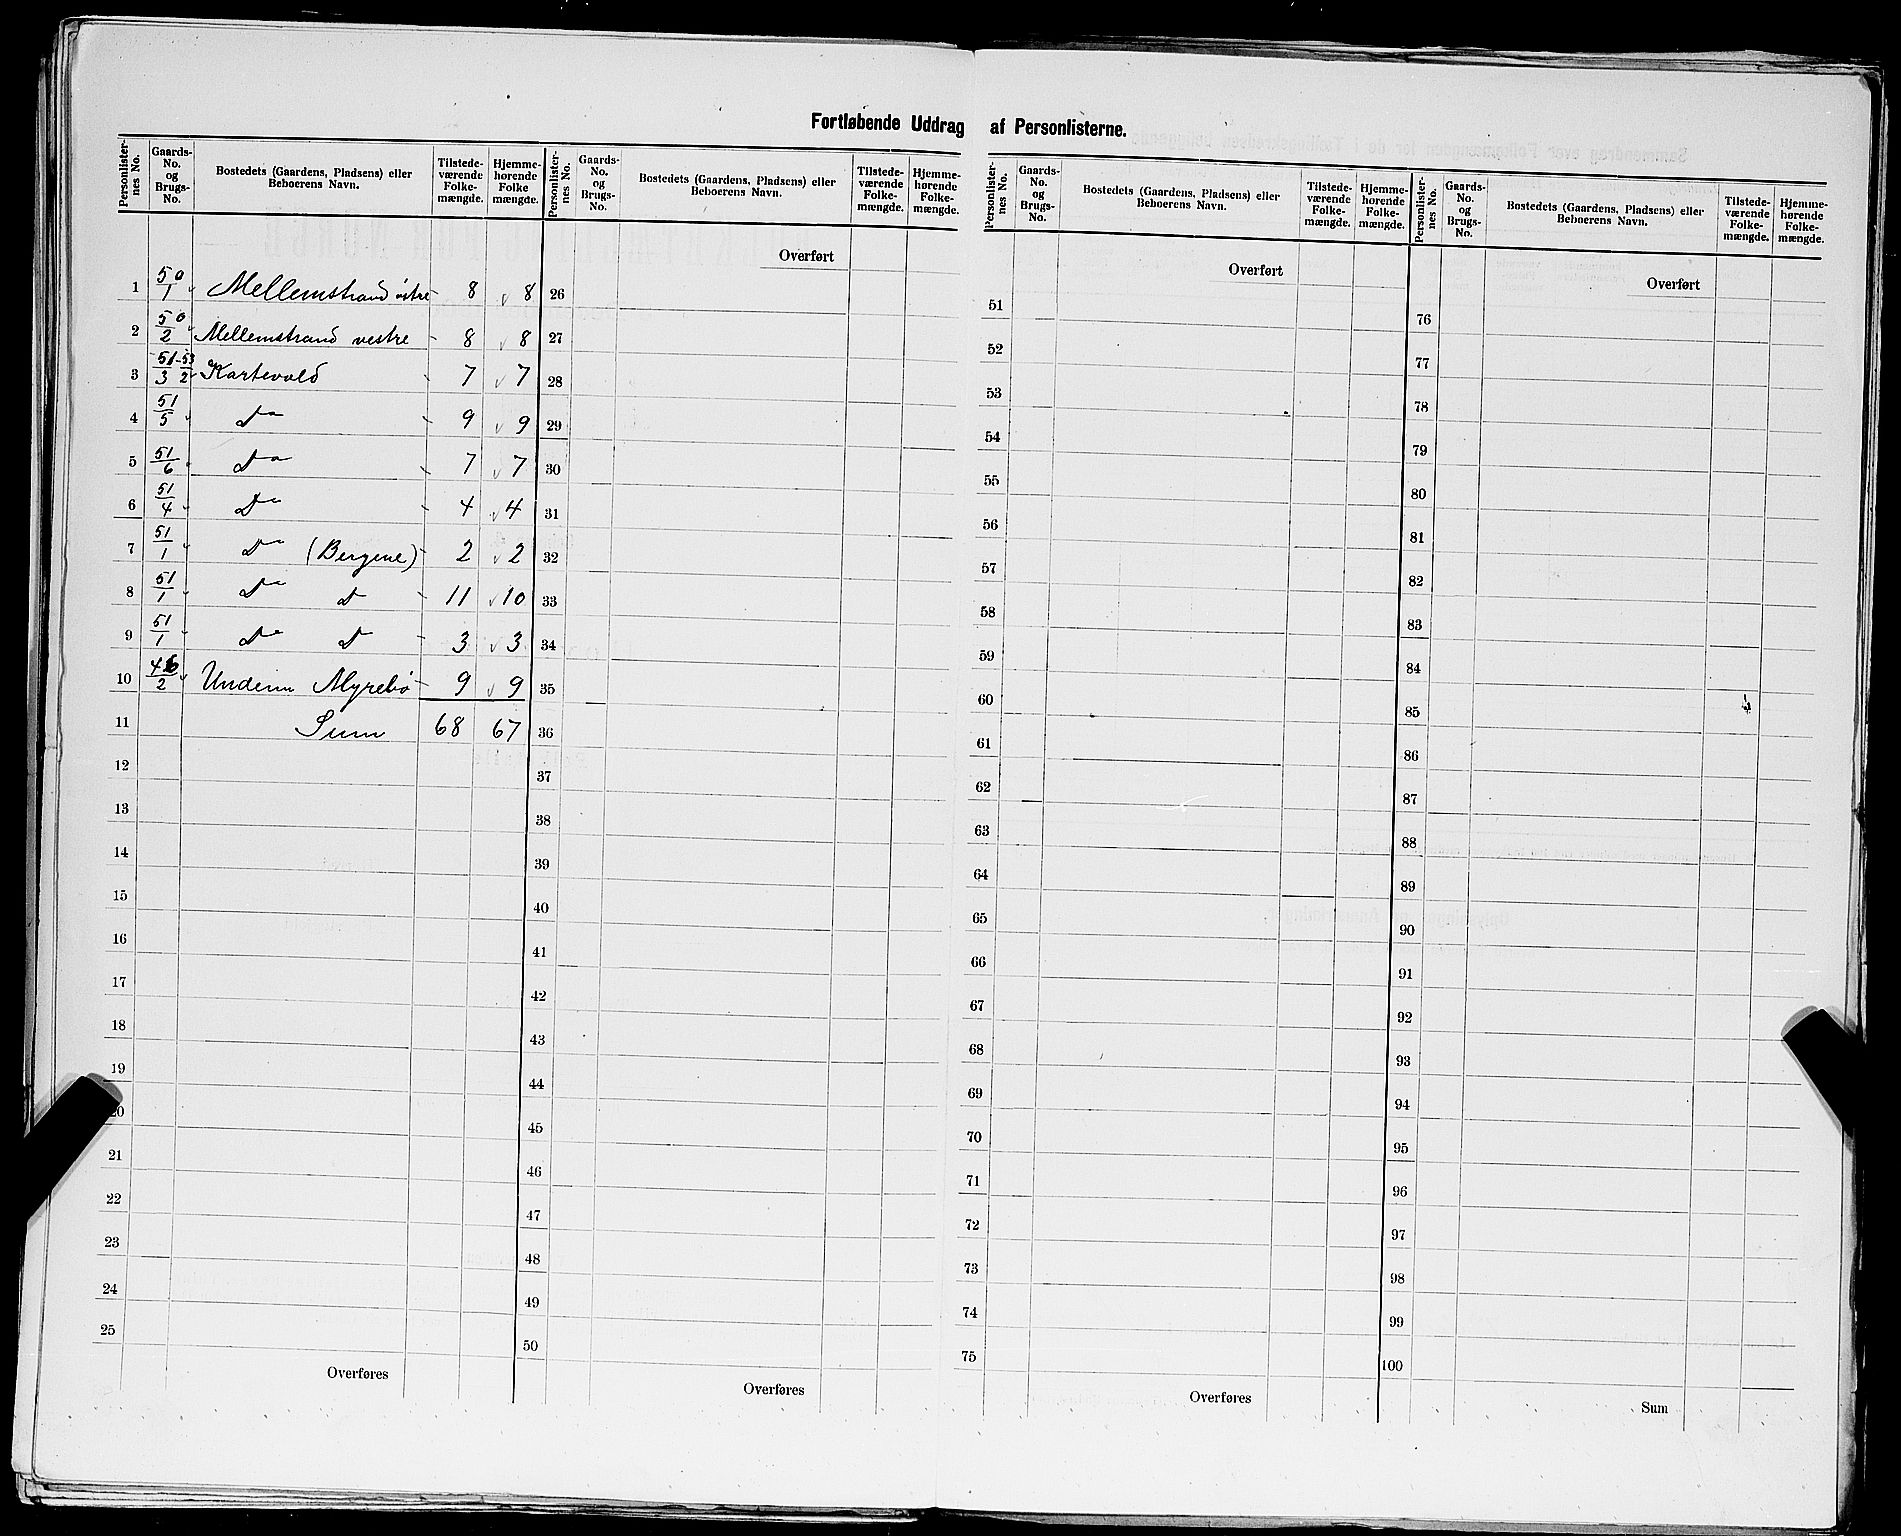 Fortløbende Uddrag af Personlisterne.
Personlister-nes No. | Gaards-No. og Brugs-No. | Bostedets (Gaardens, Pladsens) eller Beboerens Navn. | Tilstede-værende Folke-mængde. | Hjemme-hørende Folke mængde.
1 | 50/1 | Mellemstrand østre | 8 | 8
2 | 50/2 | Mellemstrand vestre | 8 | 8
3 | 51/3 - 53/2 | Kartevold | 7 | 7
4 | 51/5 | Do | 9 | 9
5 | 51/6 | Do | 7 | 7
6 | 51/4 | Do | 4 | 4
7 | 51/1 | Do (Bergene) | 2 | 2
8 | 51/1 | Do D | 11 | 10
9 | 51/1 | Do D | 3 | 3
10 | 46/2 | Myrebø | 9 | 9
11 | Sum | 68 | 67
12
13
14
15
16
17
18
19
20
21
22
23
24
25
Overføres
Personlister-nes No. | Gaards-No. og Brugs-No. | Bostedets (Gaardens, Pladsens) eller Beboerens Navn. | Tilstede-værende Folke-mængde. | Hjemme-hørende Folke-mængde.
Overført
26
27
28
29
30
31
32
33
34
35
36
37
38
39
40
41
42
43
44
45
46
47
48
49
50
Overføres
Personlister-nes No. | Gaards-No. og Brugs-No. | Bostedets (Gaardens, Pladsens) eller Beboerens Navn. | Tilstede-værende Folke-mængde. | Hjemme-hørende Folke-mængde.
Overført
51
52
53
54
55
56
57
58
59
60
61
62
63
64
65
66
67
68
69
70
71
72
73
74
75
Overføres
Personlister-nes No. | Gaards-No. og Brugs-No. | Bostedets (Gaardens, Pladsens) eller Beboerens Navn. | Tilstede-værende Folke-mængde. | Hjemme-hørende Folke-mængde.
Overført
76
77
78
79
80
81
82
83
84
85
86
87
88
89
90
91
92
93
94
95
96
97
98
99
100
Sum